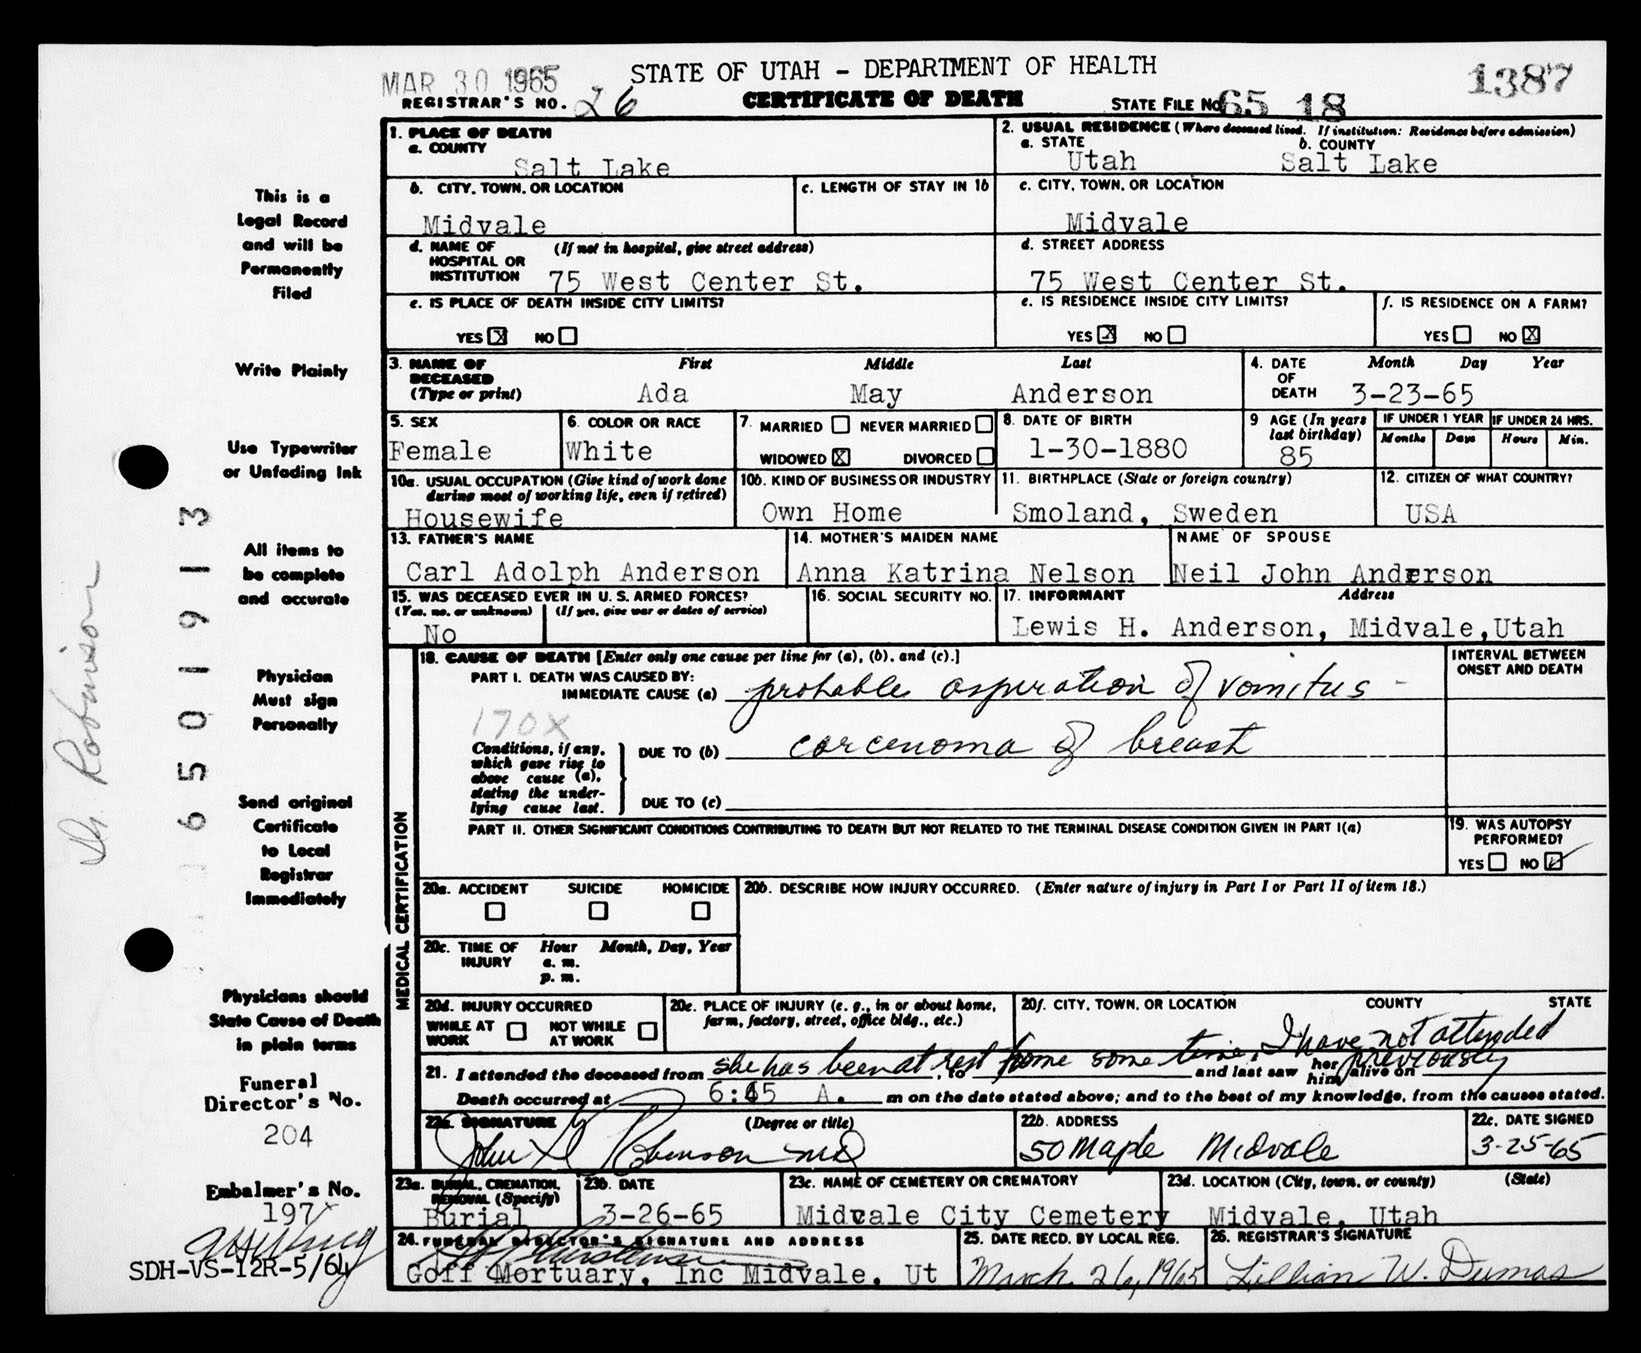 MAR 30 1965
STATE OF UTAH - DEPARTMENT OF HEALTH
1387
REGISTRAR'S NO. 26
CERTIFICATE OF DEATH
STATE FILE NO. 65 18
1. PLACE OF DEATH
a. COUNTY
Salt Lake
2. USUAL RESIDENCE (Where deceased lived. If institution: Residence before admission)
a. STATE b. COUNTY
Utah Salt Lake
b. CITY, TOWN, OR LOCATION
Midvale
c. LENGTH OF STAY IN 1b
c. CITY, TOWN, OR LOCATION
Midvale
d. NAME OF HOSPITAL OR INSTITUTION (If not in hospital, give street address)
75 West Center St.
d. STREET ADDRESS
75 West Center St.
e. IS PLACE OF DEATH INSIDE CITY LIMITS?
YES X NO
e. IS RESIDENCE INSIDE CITY LIMITS?
YES X NO
f. IS RESIDENCE ON A FARM?
YES NO X
3. NAME OF DECEASED (Type or print)
First Middle Last
Ada May Anderson
4. DATE OF DEATH Month Day Year
3-23-65
5. SEX
Female
6. COLOR OR RACE
White
7. MARRIED NEVER MARRIED
WIDOWED X DIVORCED
8. DATE OF BIRTH
1-30-1880
9 AGE (In years last birthday)
85
IF UNDER 1 YEAR
Months Days
IF UNDER 24 HRS.
Hours Min.
10a. USUAL OCCUPATION (Give kind of work done during most of working life, even if retired)
Housewife
10b. KIND OF BUSINESS OR INDUSTRY
Own Home
11. BIRTHPLACE (State or foreign country)
Smoland, Sweden
12. CITIZEN OF WHAT COUNTRY?
USA
13. FATHER'S NAME
Carl Adolph Anderson
14. MOTHER'S MAIDEN NAME
Anna Katrina Nelson
NAME OF SPOUSE
Neil John Anderson
15. WAS DECEASED EVER IN U. S. ARMED FORCES?
(Yes, no, or unknown) (If yes, give war or dates of service)
No
16. SOCIAL SECURITY NO.
17. INFORMANT Address
Lewis H. Anderson, Midvale, Utah
MEDICAL CERTIFICATION
18. CAUSE OF DEATH [Enter only one cause per line for (a), (b), and (c).]
INTERVAL BETWEEN ONSET AND DEATH
PART I. DEATH WAS CAUSED BY:
IMMEDIATE CAUSE (a) probable aspiration of vomitus -
170X
Conditions, if any, which gave rise to above cause (a), stating the under-lying cause last.
DUE TO (b) carcenoma of breast
DUE TO (c)
PART II. OTHER SIGNIFICANT CONDITIONS CONTRIBUTING TO DEATH BUT NOT RELATED TO THE TERMINAL DISEASE CONDITION GIVEN IN PART I(a)
19. WAS AUTOPSY PERFORMED?
YES NO ✓
20a. ACCIDENT SUICIDE HOMICIDE
20b. DESCRIBE HOW INJURY OCCURRED. (Enter nature of injury in Part I or Part II of item 18.)
20c. TIME OF INJURY Hour a. m. p. m. Month, Day, Year
20d. INJURY OCCURRED
WHILE AT WORK NOT WHILE AT WORK
20e. PLACE OF INJURY (e. g., in or about home, farm, factory, street, office bldg., etc.)
20f. CITY, TOWN, OR LOCATION COUNTY STATE
21. I attended the deceased from , to and last saw her him alive on
she has been at rest home some time, I have not attended previously
Death occurred at 6:45 A. m on the date stated above; and to the best of my knowledge, from the causes stated.
22a. SIGNATURE (Degree or title)
John Robinson MD
22b. ADDRESS
50 Maple Midvale
22c. DATE SIGNED
3-25-65
23a. BURIAL, CREMATION, REMOVAL (Specify)
Burial
23b. DATE
3-26-65
23c. NAME OF CEMETERY OR CREMATORY
Midvale City Cemetery
23d. LOCATION (City, town, or county) (State)
Midvale, Utah
24. FUNERAL DIRECTOR'S SIGNATURE AND ADDRESS
Goff Mortuary, Inc Midvale, Ut
25. DATE RECD. BY LOCAL REG.
March 26, 1965
26. REGISTRAR'S SIGNATURE
Lillian W. Dumas
This is a
Legal Record
and will be
Permanently
Filed
Write Plainly
Use Typewriter
or Unfading Ink
All items to
be complete
and accurate
Physician
Must sign
Personally
Send original
Certificate
to Local
Registrar
Immediately
Physicians should
State Cause of Death
in plain terms
Funeral
Director's No.
204
Embalmer's No.
197
SDH-VS-12R-5/64
Dr. Robinson
6501913